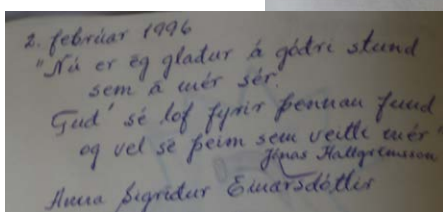 2. febrúar 1996
"Nú er ég glaður á góðri stund
sem á mér sér.
Guð' sé lof fyrir þennan fund
og vel sé þeim sem veitti mér"
Jónas Hallgrímsson
Anna Sigríður Einarsdóttir